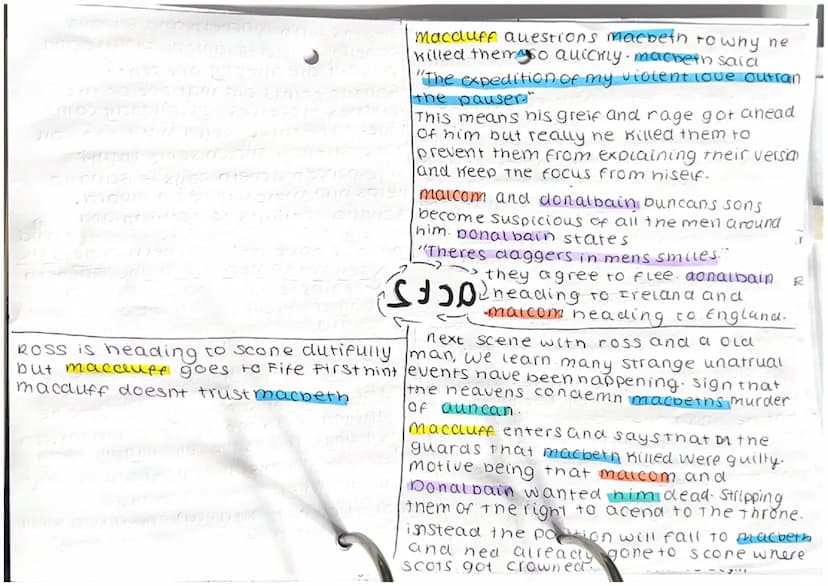 macduff questions macbeth to why he
killed them so quickly. macbeth said
"the expedition of my violent love outran
the pauser."
This means his greif and rage got ahead
of him but really he killed them to
prevent them from explaining their version
and keep the focus from hiself.
malcom and donalbain Duncans sons
become suspicious of all the men around
him. Donalbain states
"Theres daggers in mens smiles"
they agree to flee. donalbain
heading to Ireland and
malcom heading to England.
act 2
next scene with ross and a old
man, we learn many strange unatrual
events have been happening. sign that
the heavens condemn macbeths murder
of duncan.
Macduff enters and says that the
guards that macbeth killed were guilty.
motive being that malcom and
Donalbain wanted him dead. stripping
them of the right to acend to the throne.
instead the will fall to macbeth
and hed already gone to scone where
scots got crowned.
ROSS is heading to scone dutifully
but macduff goes to Fife first hint
macduff doesnt trust macbeth